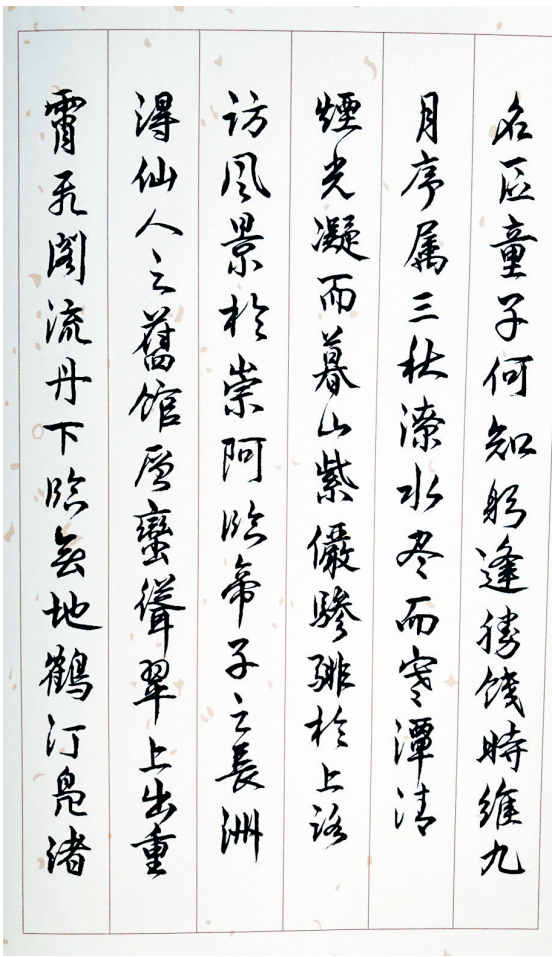 名区童子何知躬逢勝餞時維九
月序属三秋潦水尽而寒潭清
煙光凝而暮山紫儼骖騑於上路
访風景於崇阿临帝子之長洲
得仙人之舊馆层巒聳翠上出重
霄飛阁流丹下临無地鶴汀凫渚